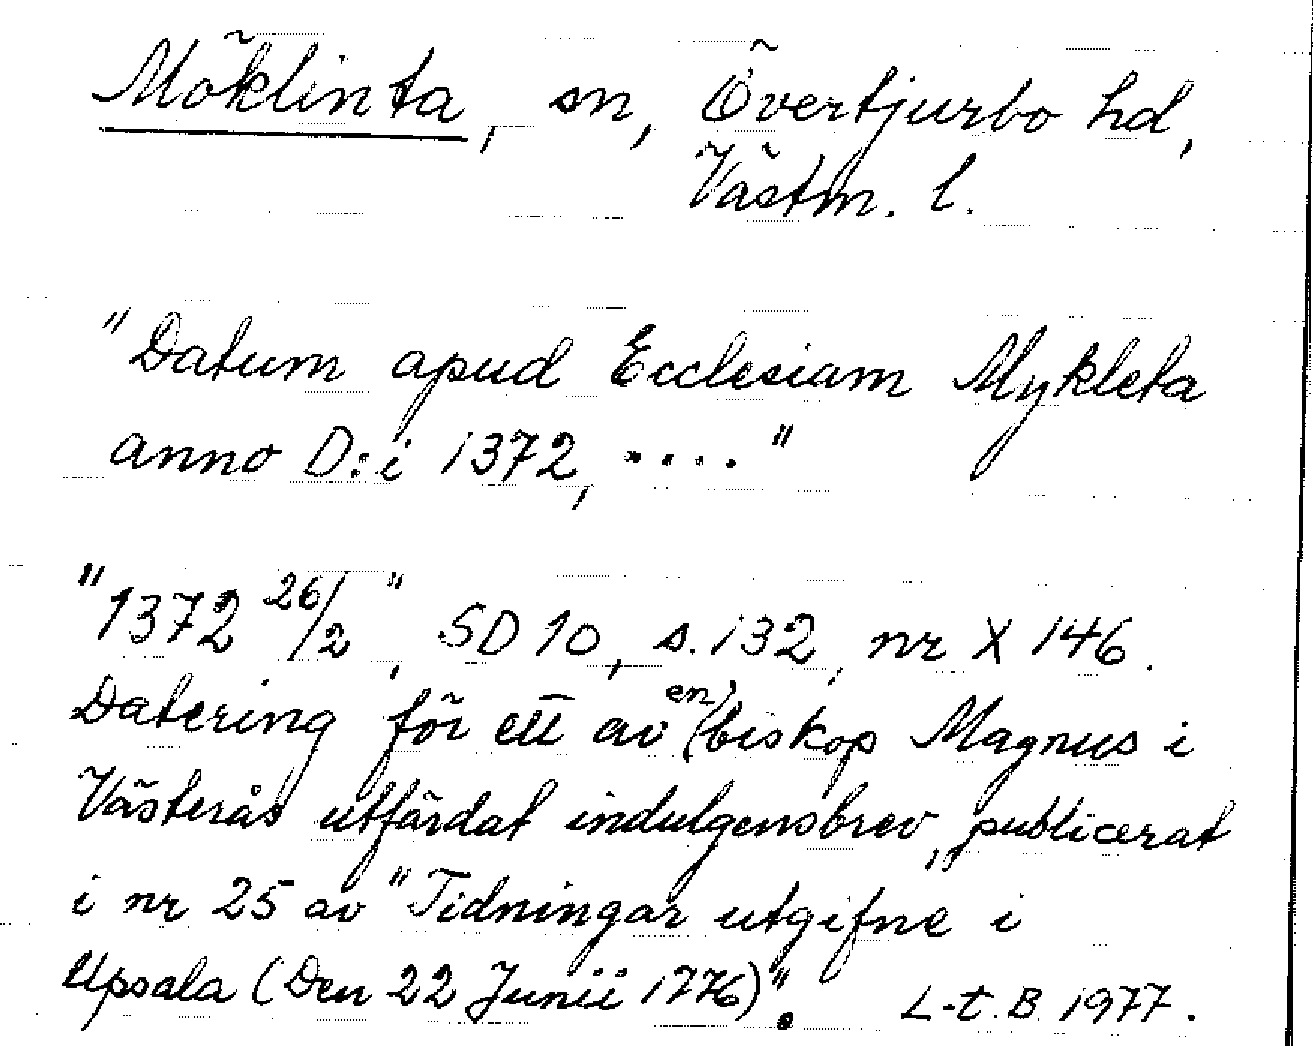 Möklinta, sn, Övertjurbo hd,
Västm. l.
"Datum apud Ecclesiam Mykleta
anno D:i 1372, ...."
"1372 26/2", SD 10, s. 132, nr X 146.
Datering för ett av (en) biskop Magnus i
Västerås utfärdat indulgensbrev, publicerat
i nr 25 av "Tidningar utgifne i
Upsala (Den 22 Junii 1776)". L-t. B. 1977.